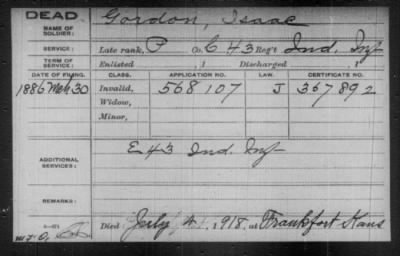 DEAD.
NAME OF SOLDIER: Gordon, Isaac
SERVICE: Late rank, P Co. C 43 Reg't Ind. Inf
TERM OF SERVICE: Enlisted , 1 Discharged , 1
DATE OF FILING. CLASS. APPLICATION NO. LAW. CERTIFICATE NO.
1886 Mch 30 Invalid, 568 107 J 367892
Widow,
Minor,
ADDITIONAL SERVICES: E 43 Ind. Inf
REMARKS:
Died July 4, 1918, at Frankfort Kans